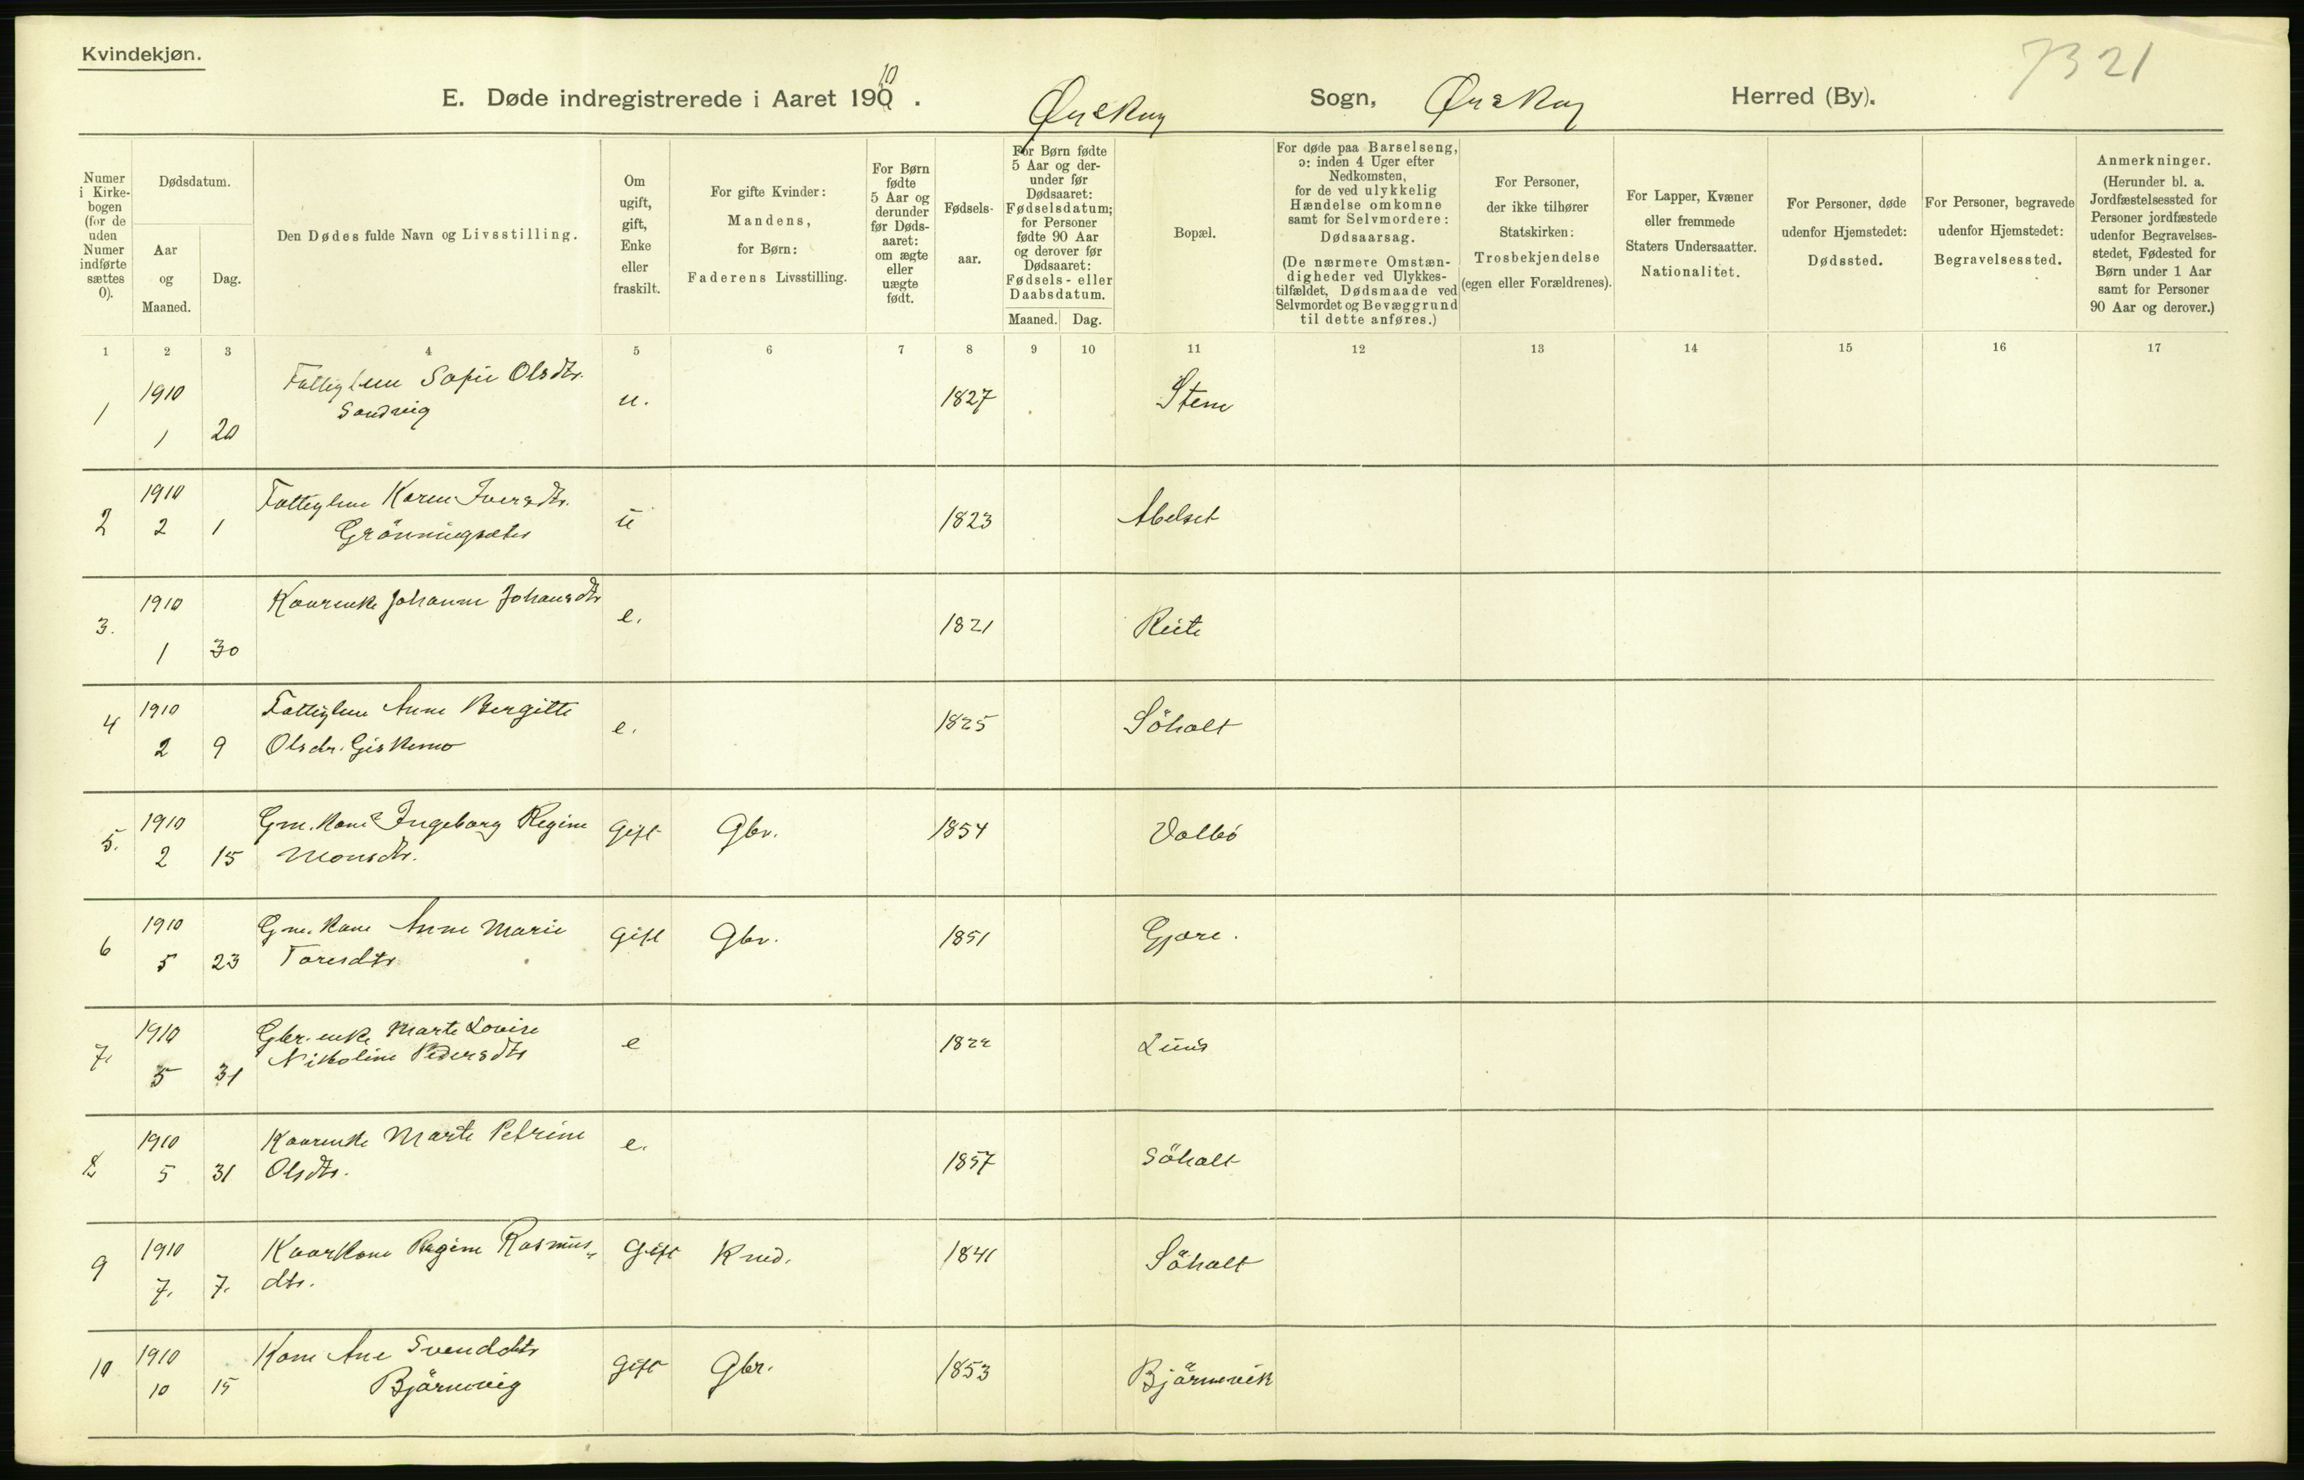 Kvindekjøn.
7321
E. Døde indregistrerede i Aaret 1910. Ørskog Sogn, Ørskog Herred (By).
Numer i Kirkebogen (for de uden Numer indførte sættes 0).
Dødsdatum.
Aar og Maaned.
Dag.
Den Dødes fulde Navn og Livsstilling.
Om ugift, gift, Enke eller fraskilt.
For gifte Kvinder: Mandens, for Børn: Faderens Livsstilling.
For Børn fødte 5 Aar og derunder før Dødsaaret: om ægte eller uægte født.
Fødselsaar.
For Børn fødte 5 Aar og derunder før Dødsaaret: Fødselsdatum; for Personer fødte 90 Aar og derover før Dødsaaret: Fødsels- eller Daabsdatum.
Maaned. Dag.
Bopæl.
For døde paa Barselseng, ɔ: inden 4 Uger efter Nedkomsten, for de ved ulykkelig Hændelse omkomne samt for Selvmordere: Dødsaarsag. (De nærmere Omstændigheder ved Ulykkestilfældet, Dødsmaade ved Selvmordet og Bevæggrund til dette anføres.)
For Personer, der ikke tilhører Statskirken: Trosbekjendelse (egen eller Forældrenes).
For Lapper, Kvæner eller fremmede Staters Undersaatter. Nationalitet.
For Personer, døde udenfor Hjemstedet: Dødssted.
For Personer, begravede udenfor Hjemstedet: Begravelsessted.
Anmerkninger. (Herunder bl. a. Jordfæstelsessted for Personer jordfæstede udenfor Begravelsesstedet, Fødested for Børn under 1 Aar samt for Personer 90 Aar og derover.)
1 2 3 4 5 6 7 8 9 10 11 12 13 14 15 16 17
1 1910 1 20 Fattiglem Sofie Olsdtr. Sandvig u. 1827 Stene
2 1910 2 1 Fattiglem Karen Iversdtr. Grönningsæter u 1823 Abelset
3. 1910 1 30 Kaarenke Johanne Johansdtr e. 1821 Reite
4 1910 2 9 Fattiglem Anne Bergitte Olsdr. Giskemo e. 1825 Söholt
5. 1910 2 15 Gm. Kone Ingeborg Regine Monsdtr. Gift Gbr. 1854 Valbö
6 1910 5 23 Gm. Kone Anne Marie Toresdtr Gift Gbr. 1851 Gjære.
7. 1910 5 31 Gbr. enke Marte Lovise Nikoline Pedersdtr e 1822
8 1910 5 31 Kaarenke Marte Petrine Olsdtr. e. 1857 Söholt
9 1910 7. 7. Kaarkone Regine Rasmusdtr. Gift 1841 Söholt
10 1910 10 15 Kone Ane Svendsdtr Björnevig Gift Gbr. 1853 Björnevik